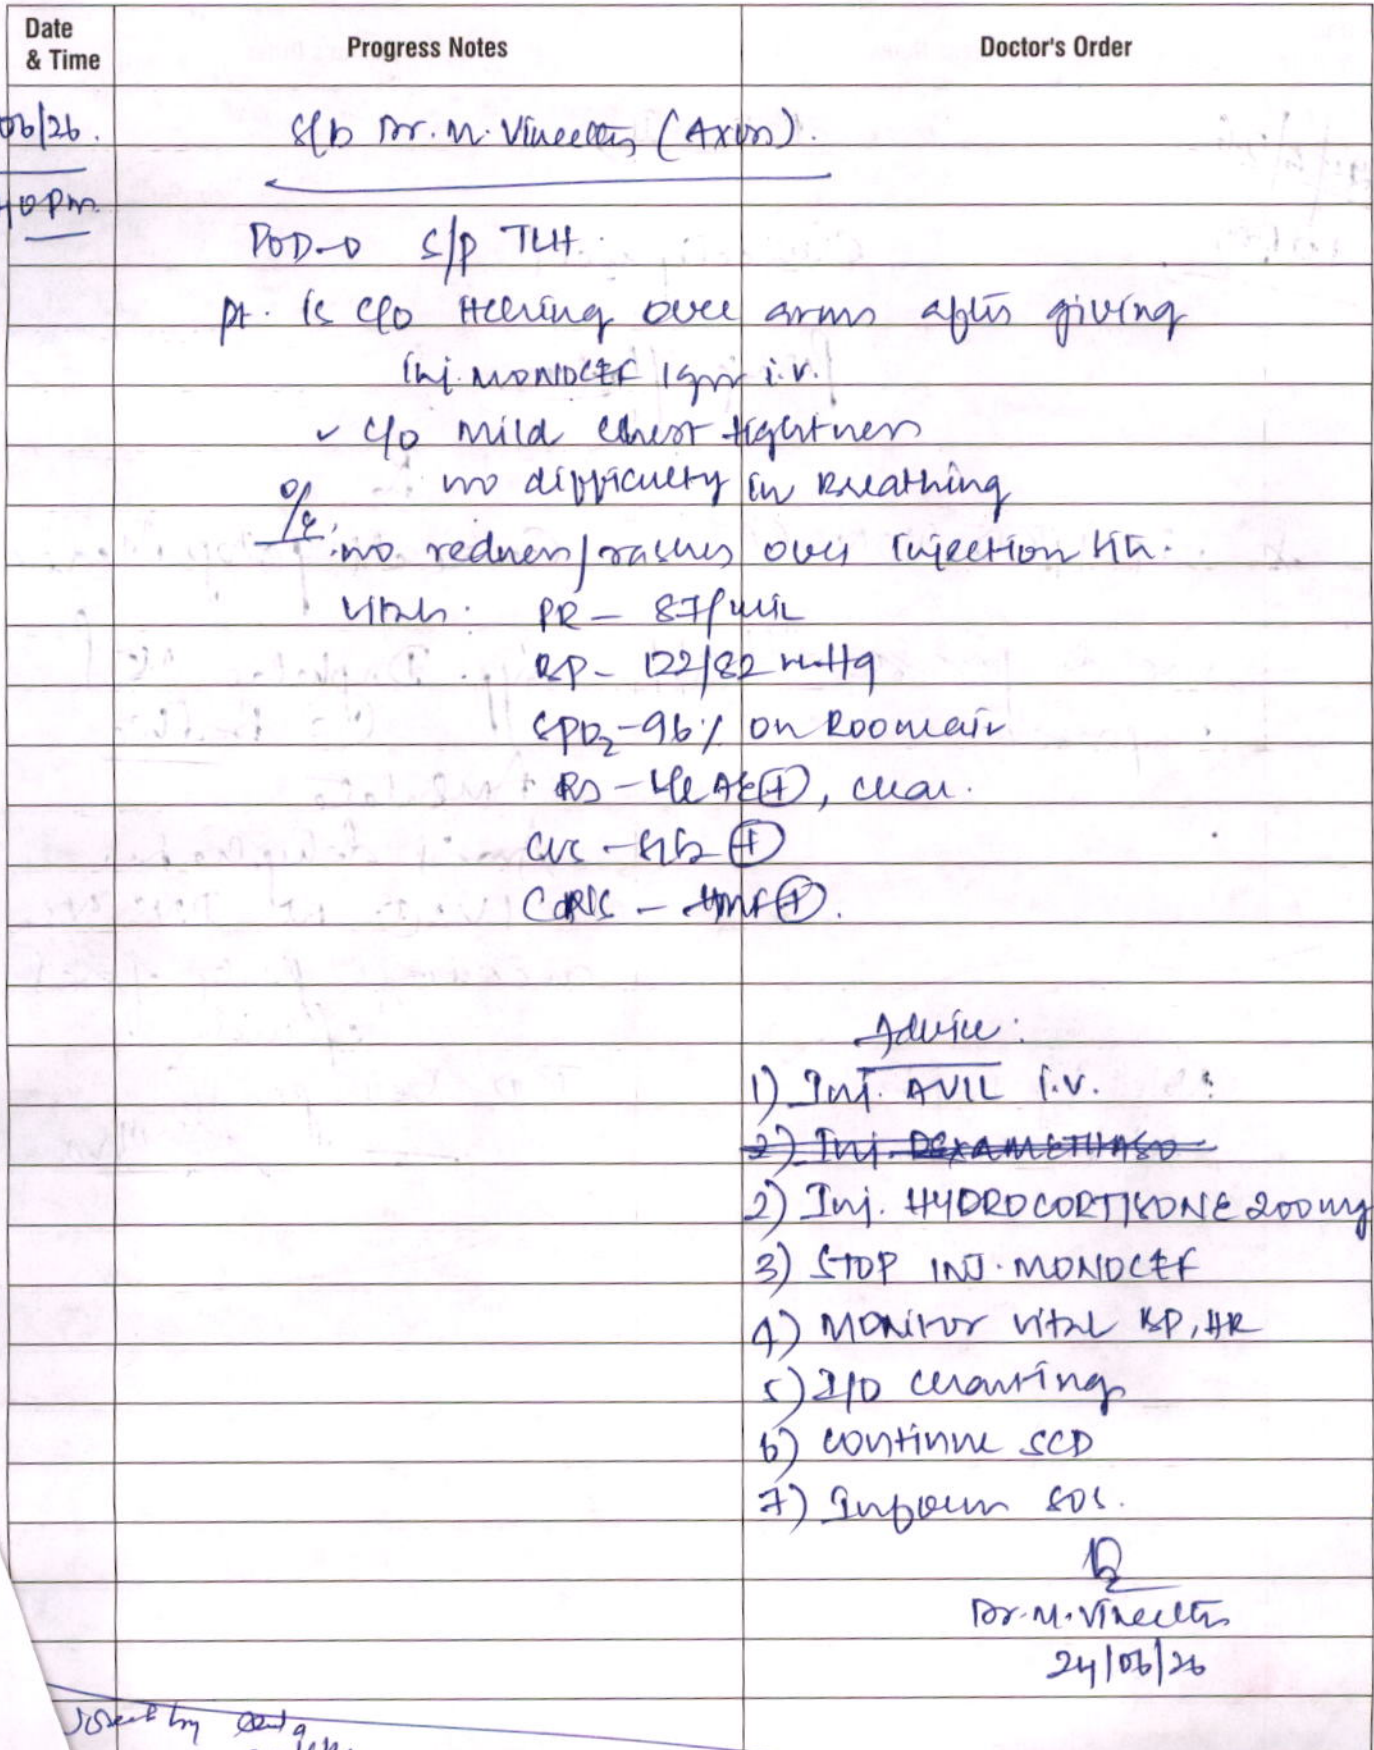 Date & Time
Progress Notes
Doctor's Order
06/26.
S/b Dr. M. Vineetha (Axon).
40pm
POD-0 S/P TLH.
pt. is c/o Itching over arms after giving
Inj. MONOCEF 1gm i.v.
✓ c/o Mild chest tightness
no difficulty in Breathing
O/E: no redness/rashes over injection site.
Vitals: PR – 87/min
BP – 122/82 mmHg
SPO2 – 96% on Room air
RS – B/L AE (+), clear.
CVS – S1S2 (+)
– HMF (+).
Advice:
1) Inj. AVIL i.v.
2) Inj. DEXAMETHASO
2) Inj. HYDROCORTISONE 200mg
3) STOP INJ. MONOCEF
4) Monitor vital BP, HR
5) I/O charting
6) continue SCD
7) Inform SOS.
Dr. M. Vineetha
24/06/26
by